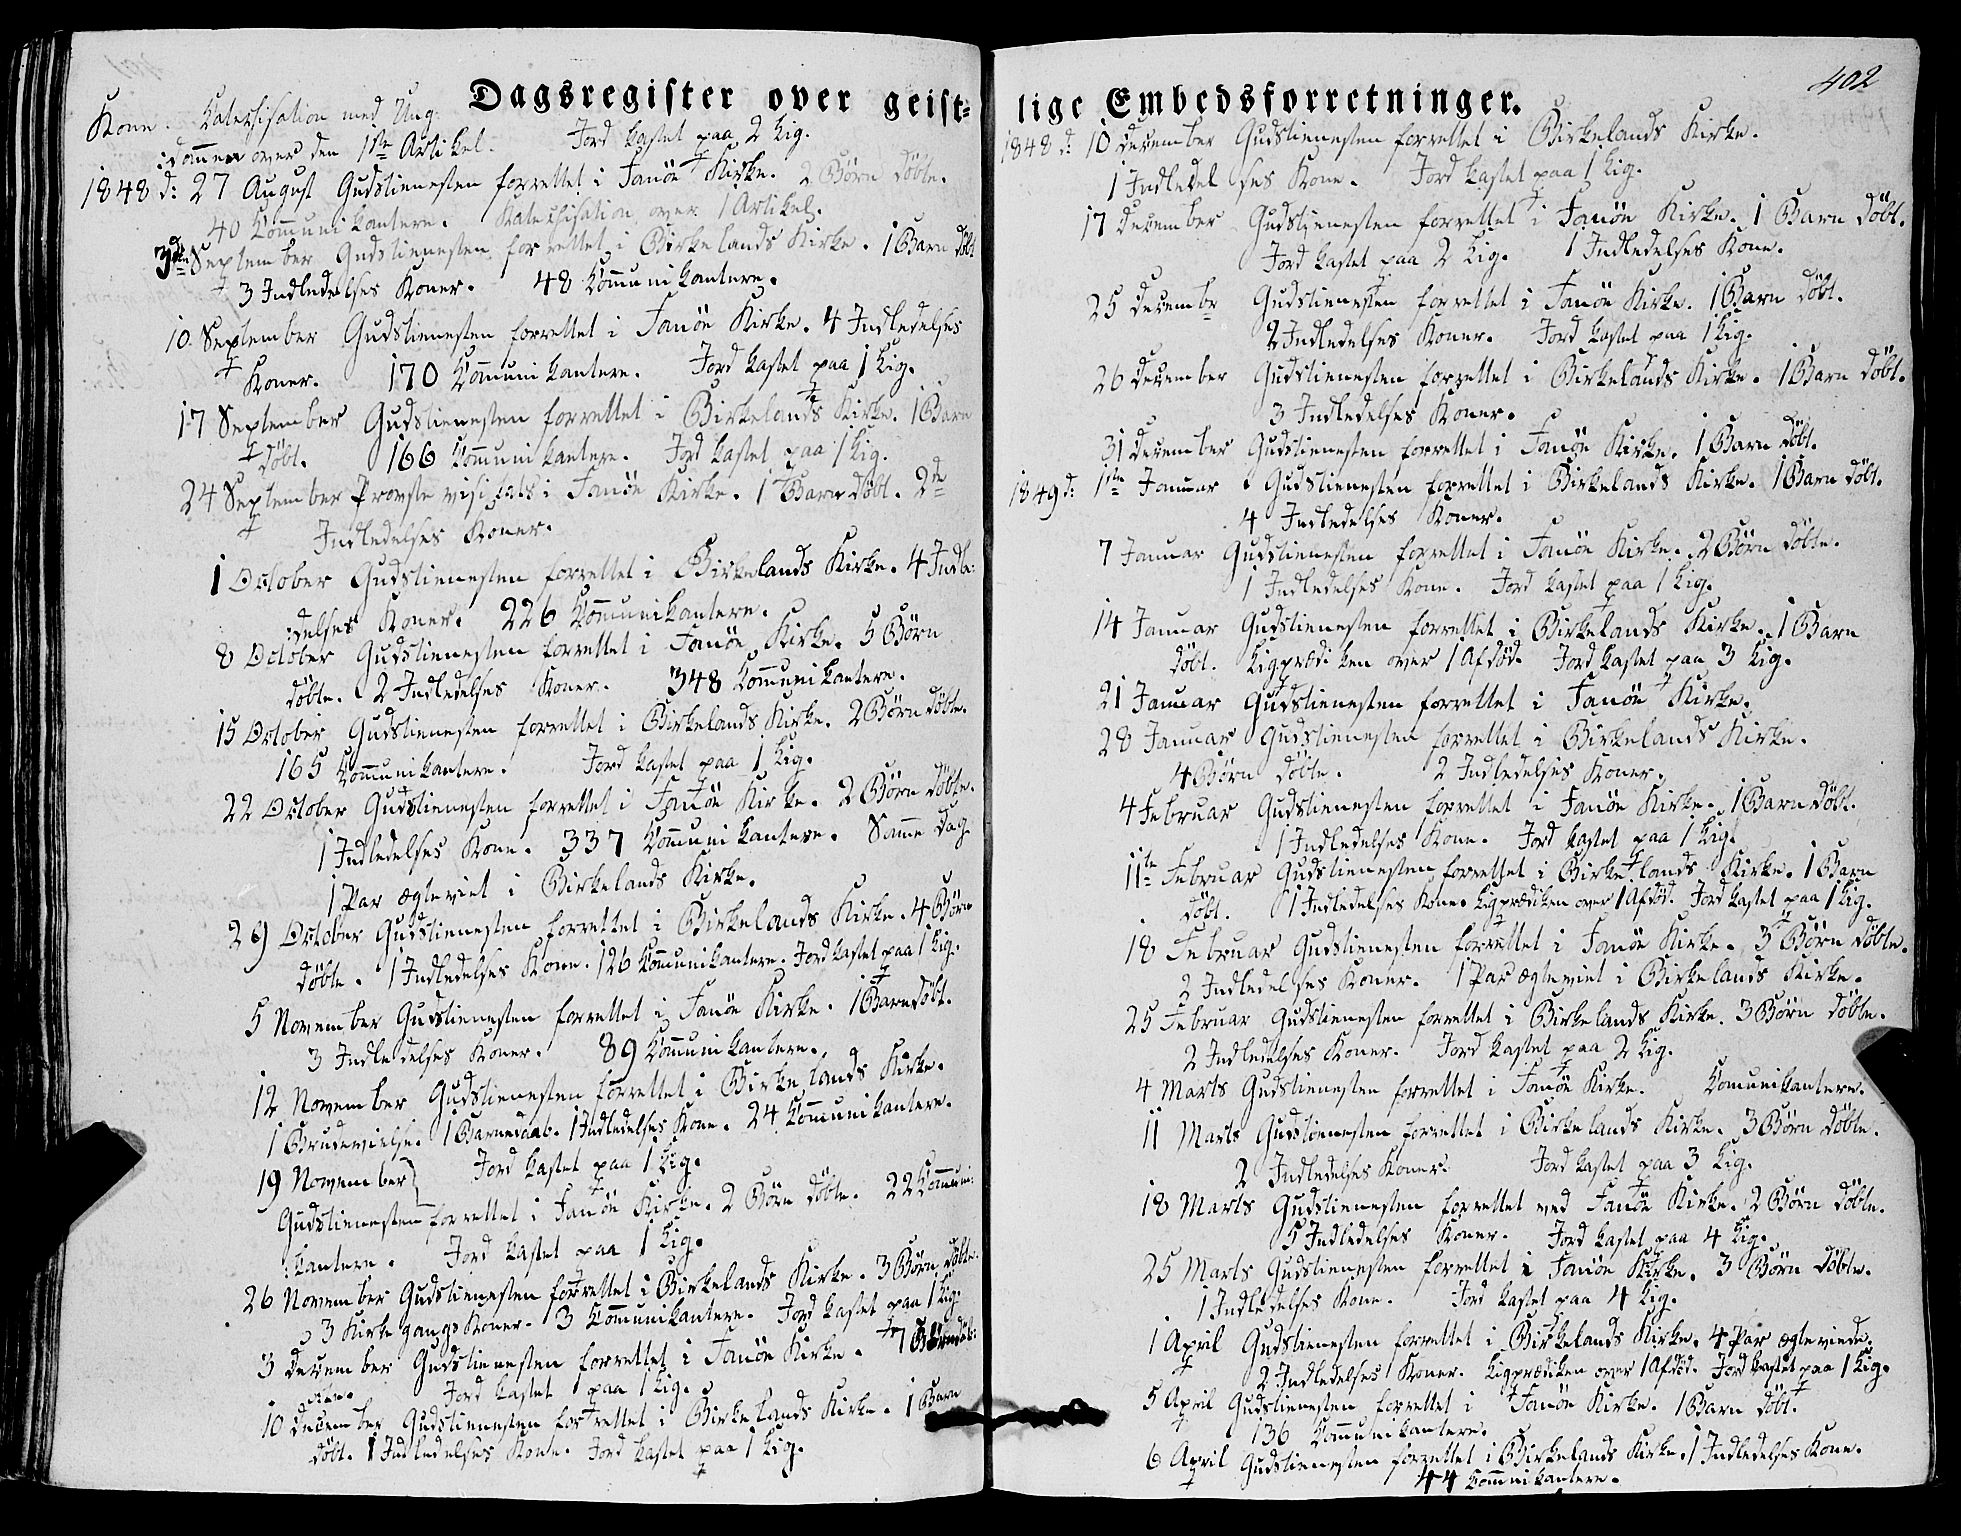 Dagsregister over geist-
Kone. Katechisation med Ung-
:dommen over den 1ste Artikel. Jord kastet paa 2 Lig.
1848 d: 27 August Gudstienesten forrettet i Fanöe Kirke. 2 Börn döbte.
40 Communikantere. Katechisation over 1 Artikel.
3die September Gudstienesten forrettet i Birkelands Kirke. 1 Barn döbt
3 Indledelses Koner. 48 Communikantere.
10 September Gudstienesten forrettet i Fanöe Kirke. 4 Indledelses
Koner. 170 Communikantere. Jord kastet paa 1 Lig.
17 September Gudstienesten forrettet i Birkelands Kirke. 1 Barn
döbt. 166 Communikantere. Jord kastet paa 1 Lig.
24 September Provste visitats i Fanöe Kirke. 1 Barn döbt. 2de
Indledelses Koner.
1 October Gudstienesten forrettet i Birkelands Kirke. 4 Indle:
:delses Koner. 226 Communikantere.
8 October Gudstienesten forrettet i Fanöe Kirke. 5 Börn
döbte. 2 Indledelses Koner. 348 Communikantere.
15 October Gudstienesten forrettet i Birkelands Kirke. 2 Börn döbte.
165 Communikantere. Jord kastet paa 1 Lig.
22 October Gudstienesten forrettet i Fanöe Kirke. 2 Börn döbte.
1 Indledelses Kone. 337 Communikantere. Samme Dag
1 Par ægteviet i Birkelands Kirke.
29 October Gudstienesten forrettet i Birkelands Kirke. 4 Börn
döbte. 1 Indledelses Kone. 126 Communikantere. Jord kastet paa 1 Lig.
5 November Gudstienesten forrettet i Fanöe Kirke. 1 Barn döbt.
3 Indledelses Koner. 89 Communikantere.
12 November Gudstienesten forrettet i Birkelands Kirke.
1 Brudevielse. 1 Barnedaab. 1 Indledelses Kone. 24 Communikantere.
19 November Jord kastet paa 1 Lig.
Gudstienesten forrettet i Fanöe Kirke. 2 Börn döbte. 22 Communi:
:kantere. Jord kastet paa 1 Lig.
26 November Gudstienesten forrettet i Birkelands Kirke. 3 Börn döbte.
3 Kirkegangs Koner. 3 Communikantere. Jord kastet paa 1 Lig.
3 December Gudstienesten forrettet i Fanöe Kirke. 7 Börn
Jord kastet paa 1 Lig.
10 December Gudstienesten forrettet i Birkelands Kirke. 1 Barn
döbt. 1 Indledelses Kone. Jord kastet paa 1 Lig.
402
lige Embedsforretninger.
1848 d: 10 December Gudstienesten forrettet i Birkelands Kirke.
1 Indledelses Kone. Jord kastet paa 1 Lig.
17 December Gudstienesten forrettet i Fanöe Kirke. 1 Barn döbt.
Jord kastet paa 2 Lig. 1 Indledelses Kone.
25 December Gudstienesten forrettet i Fanöe Kirke. 1 Barn döbt.
2 Indledelses Koner. Jord kastet paa 1 Lig.
26 December Gudstienesten forrettet i Birkelands Kirke. 1 Barn döbt.
3 Indledelses Koner.
31 December Gudstienesten forrettet i Fanöe Kirke. 1 Barn döbt.
1849 d: 1ste Januar Gudstienesten forrettet i Birkelands Kirke. 1 Barn döbt.
4 Indledelses Koner.
7 Januar Gudstienesten forrettet i Fanöe Kirke. 2 Börn döbte.
1 Indledelses Kone. Jord kastet paa 1 Lig.
14 Januar Gudstienesten forrettet i Birkelands Kirke. 1 Barn
döbt. Ligprædiken over 1 Afdöd. Jord kastet paa 3 Lig.
21 Januar Gudstienesten forrettet i Fanöe Kirke.
28 Januar Gudstienesten forrettet i Birkelands Kirke.
4 Börn döbte. 2 Indledelses Koner.
4 Februar Gudstienesten forrettet i Fanöe Kirke. 1 Barn döbt.
1 Indledelses Kone. Jord kastet paa 1 Lig.
11te Februar Gudstienesten forrettet i Birkelands Kirke. 1 Barn
döbt. 1 Indledelses Kone. Ligprædiken over 1 Afdöd. Jord kastet paa 1 Lig.
18 Februar Gudstienesten forrettet i Fanöe Kirke. 3 Börn döbte.
2 Indledelses Koner. 1 Par ægteviet i Birkelands Kirke.
25 Februar Gudstienesten forrettet i Birkelands Kirke. 3 Börn döbte.
2 Indledelses Koner. Jord kastet paa 2 Lig.
4 Marts Gudstienesten forrettet i Fanöe Kirke. Comunikantere.
11 Marts Gudstienesten forrettet i Birkelands Kirke. 3 Börn döbte.
2 Indledelses Koner. Jord kastet paa 3 Lig.
18 Marts Gudstienesten forrettet ved Fanöe Kirke. 2 Börn döbte.
5 Indledelses Koner. Jord kastet paa 4 Lig.
25 Marts Gudstienesten forrettet i Fanöe Kirke. 3 Börn döbte.
1 Indledelses Kone. Jord kastet paa 4 Lig.
1 April Gudstienesten forrettet i Birkelands Kirke. 4 Par ægteviede.
2 Indledelses Koner. Ligprædiken over 1 Afdöd. Jord kastet paa 1 Lig.
5 April Gudstienesten forrettet i Fanöe Kirke. 1 Barn döbt.
136 Communikantere.
6 April Gudstienesten forrettet i Birkelands Kirke. 1 Indledelses Kone.
44 Communikantere.